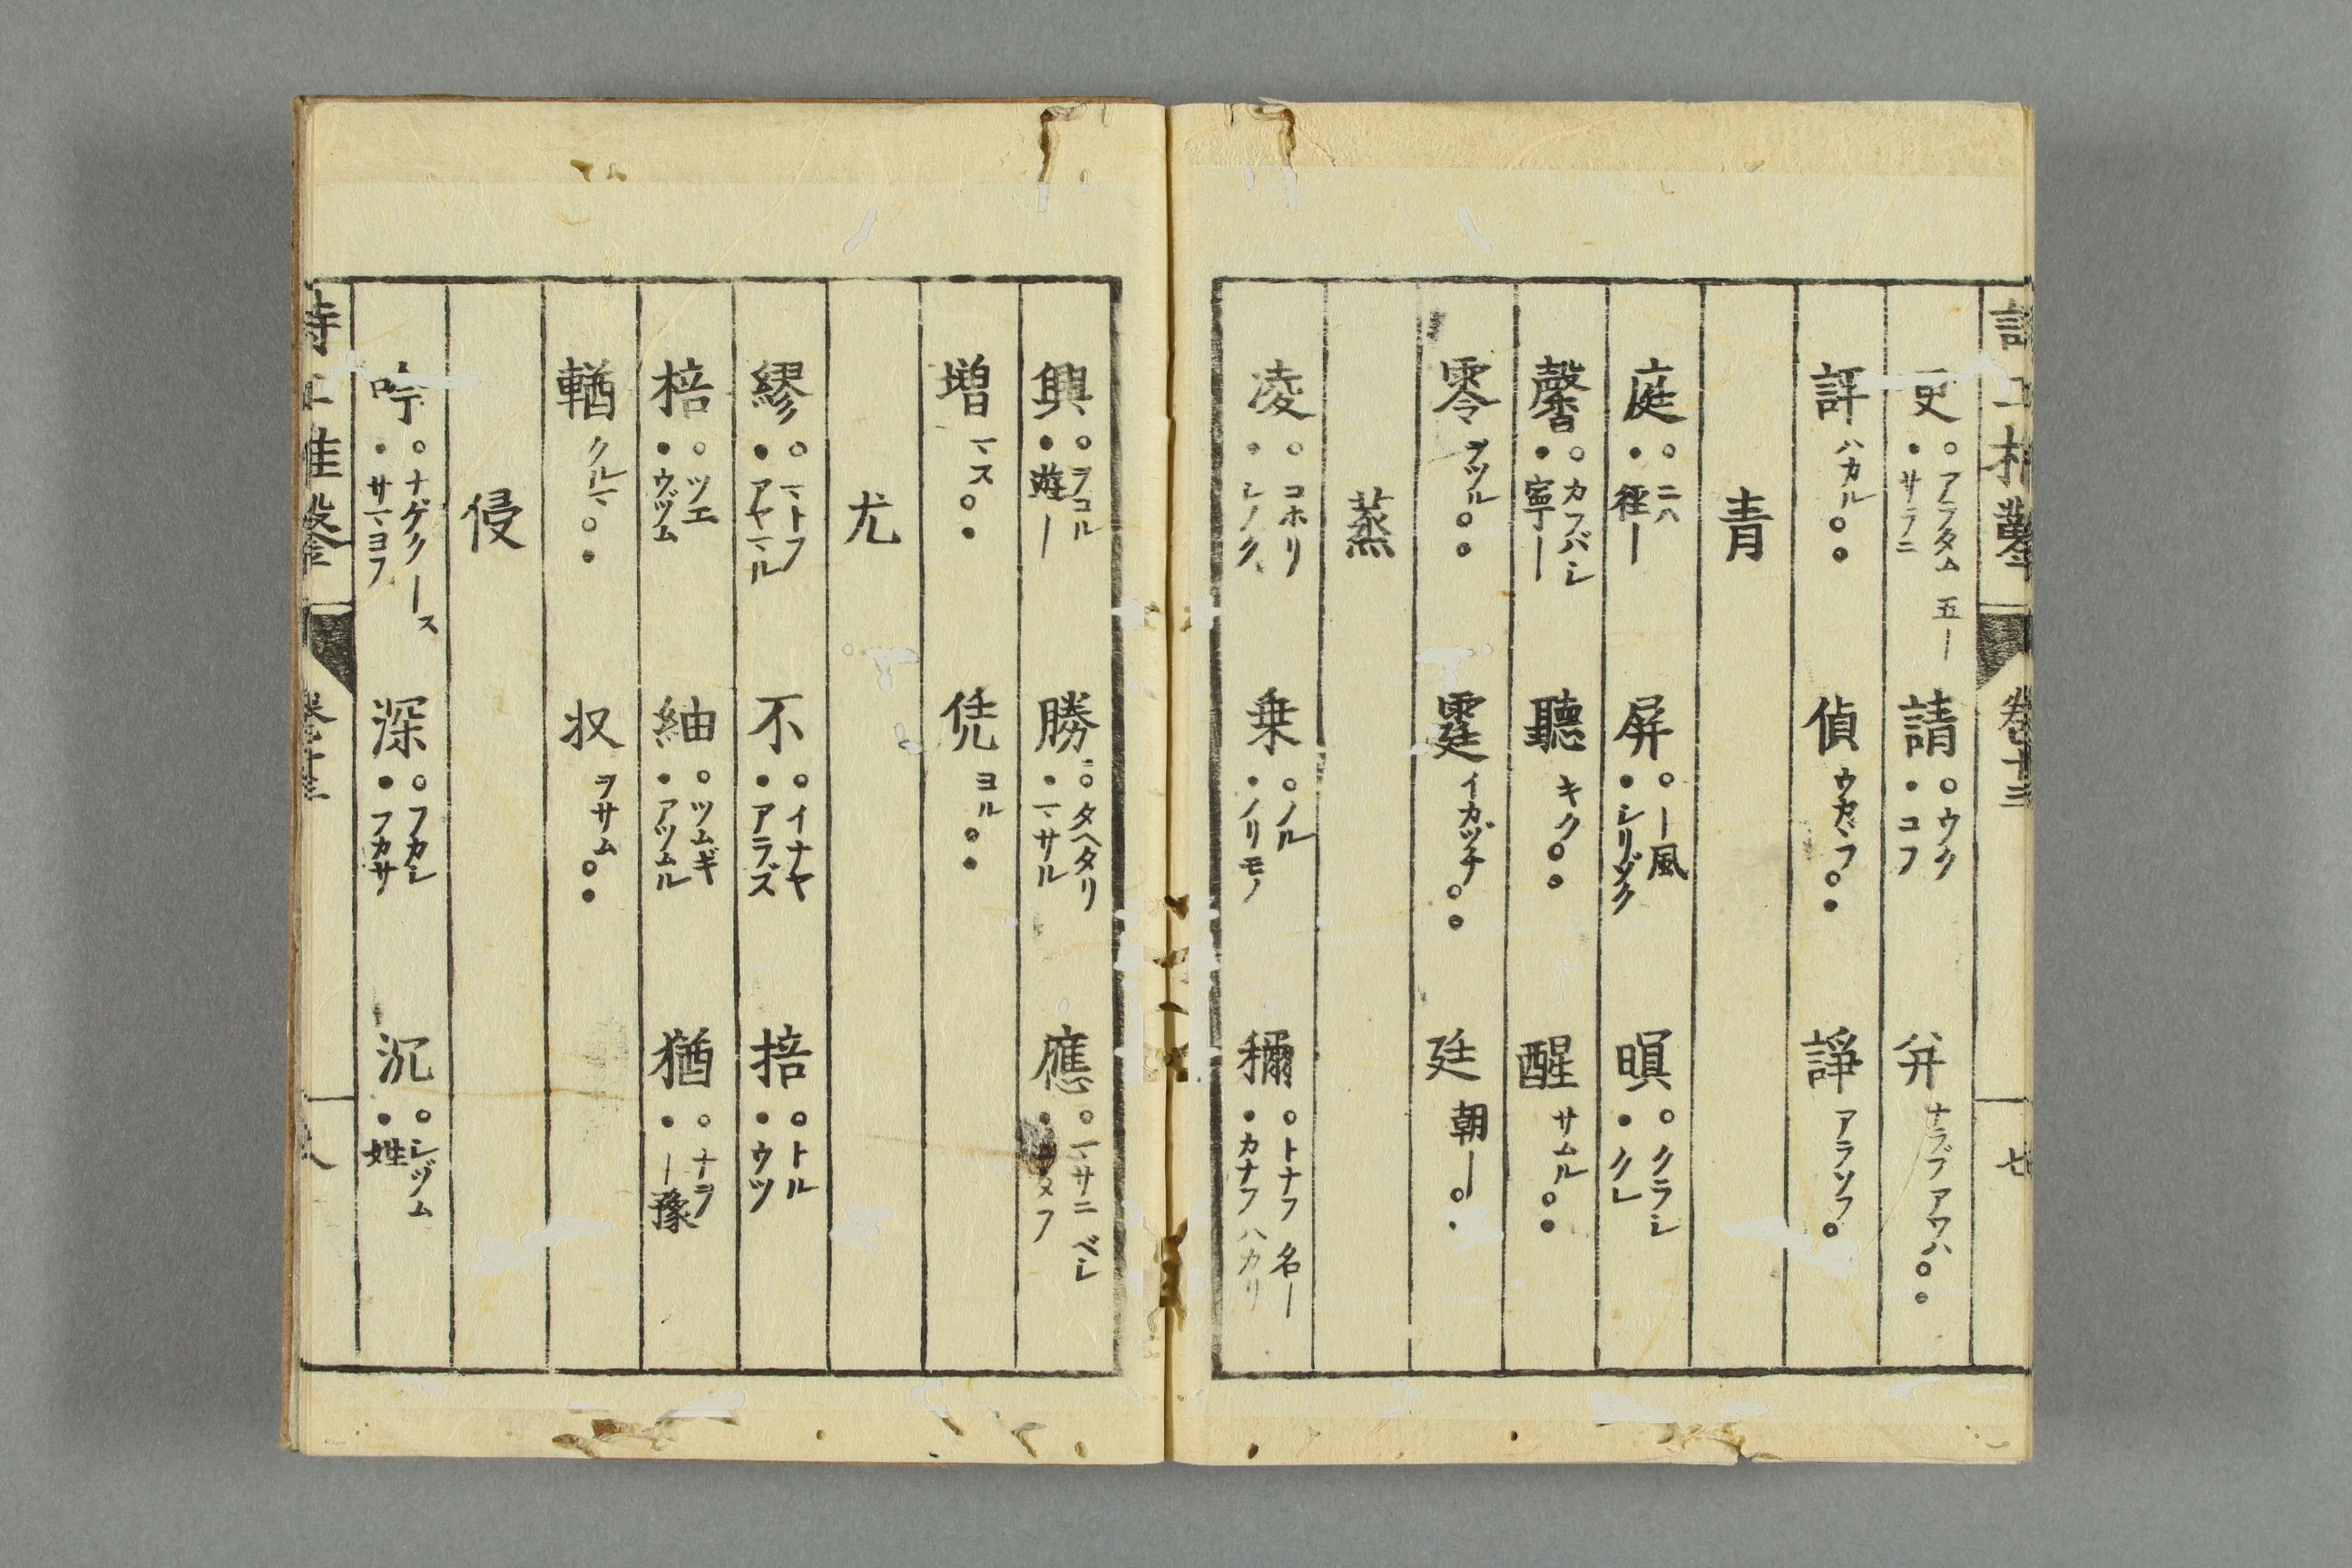 更 ○アラタム 五｜ ●サラニ 請 ○ウク ●コフ 并 ナラブアワハ○●
評 ハカル○● 偵 ウカヾフ○● 諍 アラソフ○
青
庭 ○ニハ ●徑｜ 屏 ○｜風 ●シリゾク 暝 ○クラシ ●クレ
馨 ○カフバシ ●寧｜ 聽 キク○● 醒 サムル○●
零 ヲツル○● 霆 イカヅチ○● 廷 朝｜○●
蒸
凌 ○コホリ ●シノク 乗 ○ノル ●ノリモノ 稱 ○トナフ 名｜ ●カナフ ハカリ
興 ○ヲコル ●遊｜ 勝 ○タヘタリ ●マサル 應 ○マサニ ベシ
増 マス○● 凭 ヨル○●
尤
繆 ○マトフ ●アヤマル 不 ○イナヤ ●アラズ 掊 ○トル ●ウツ
棓 ○ツエ ●ウヅム 紬 ○ツムギ ●アツムル 猶 ○ナヲ ●｜豫
輶 クルマ○● 収 ヲサム○●
侵
吟 ○ナゲク｜ス ●サマヨフ 深 ○フカシ ●フカサ 沉 ○シヅム ●姓